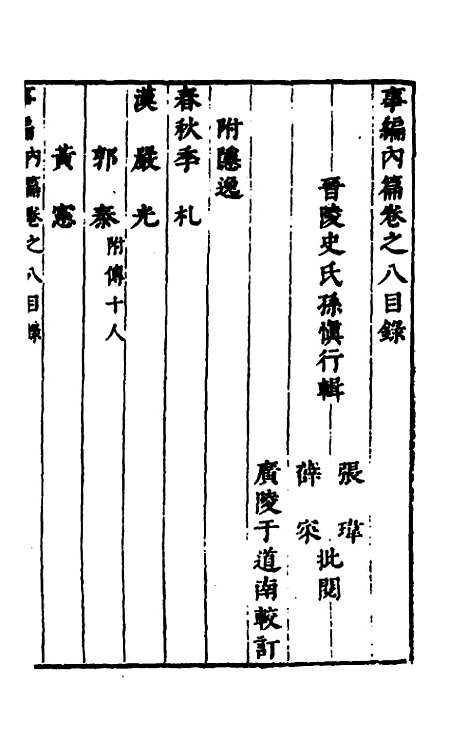 事編內篇卷之八目錄
晉陵史氏孫愼行輯
張瑋
薛寀
批閱
廣陵于道南較訂
附隱逸
春秋季札
漢嚴光
郭泰附傳十人
黃憲
事編內篇卷之八目錄